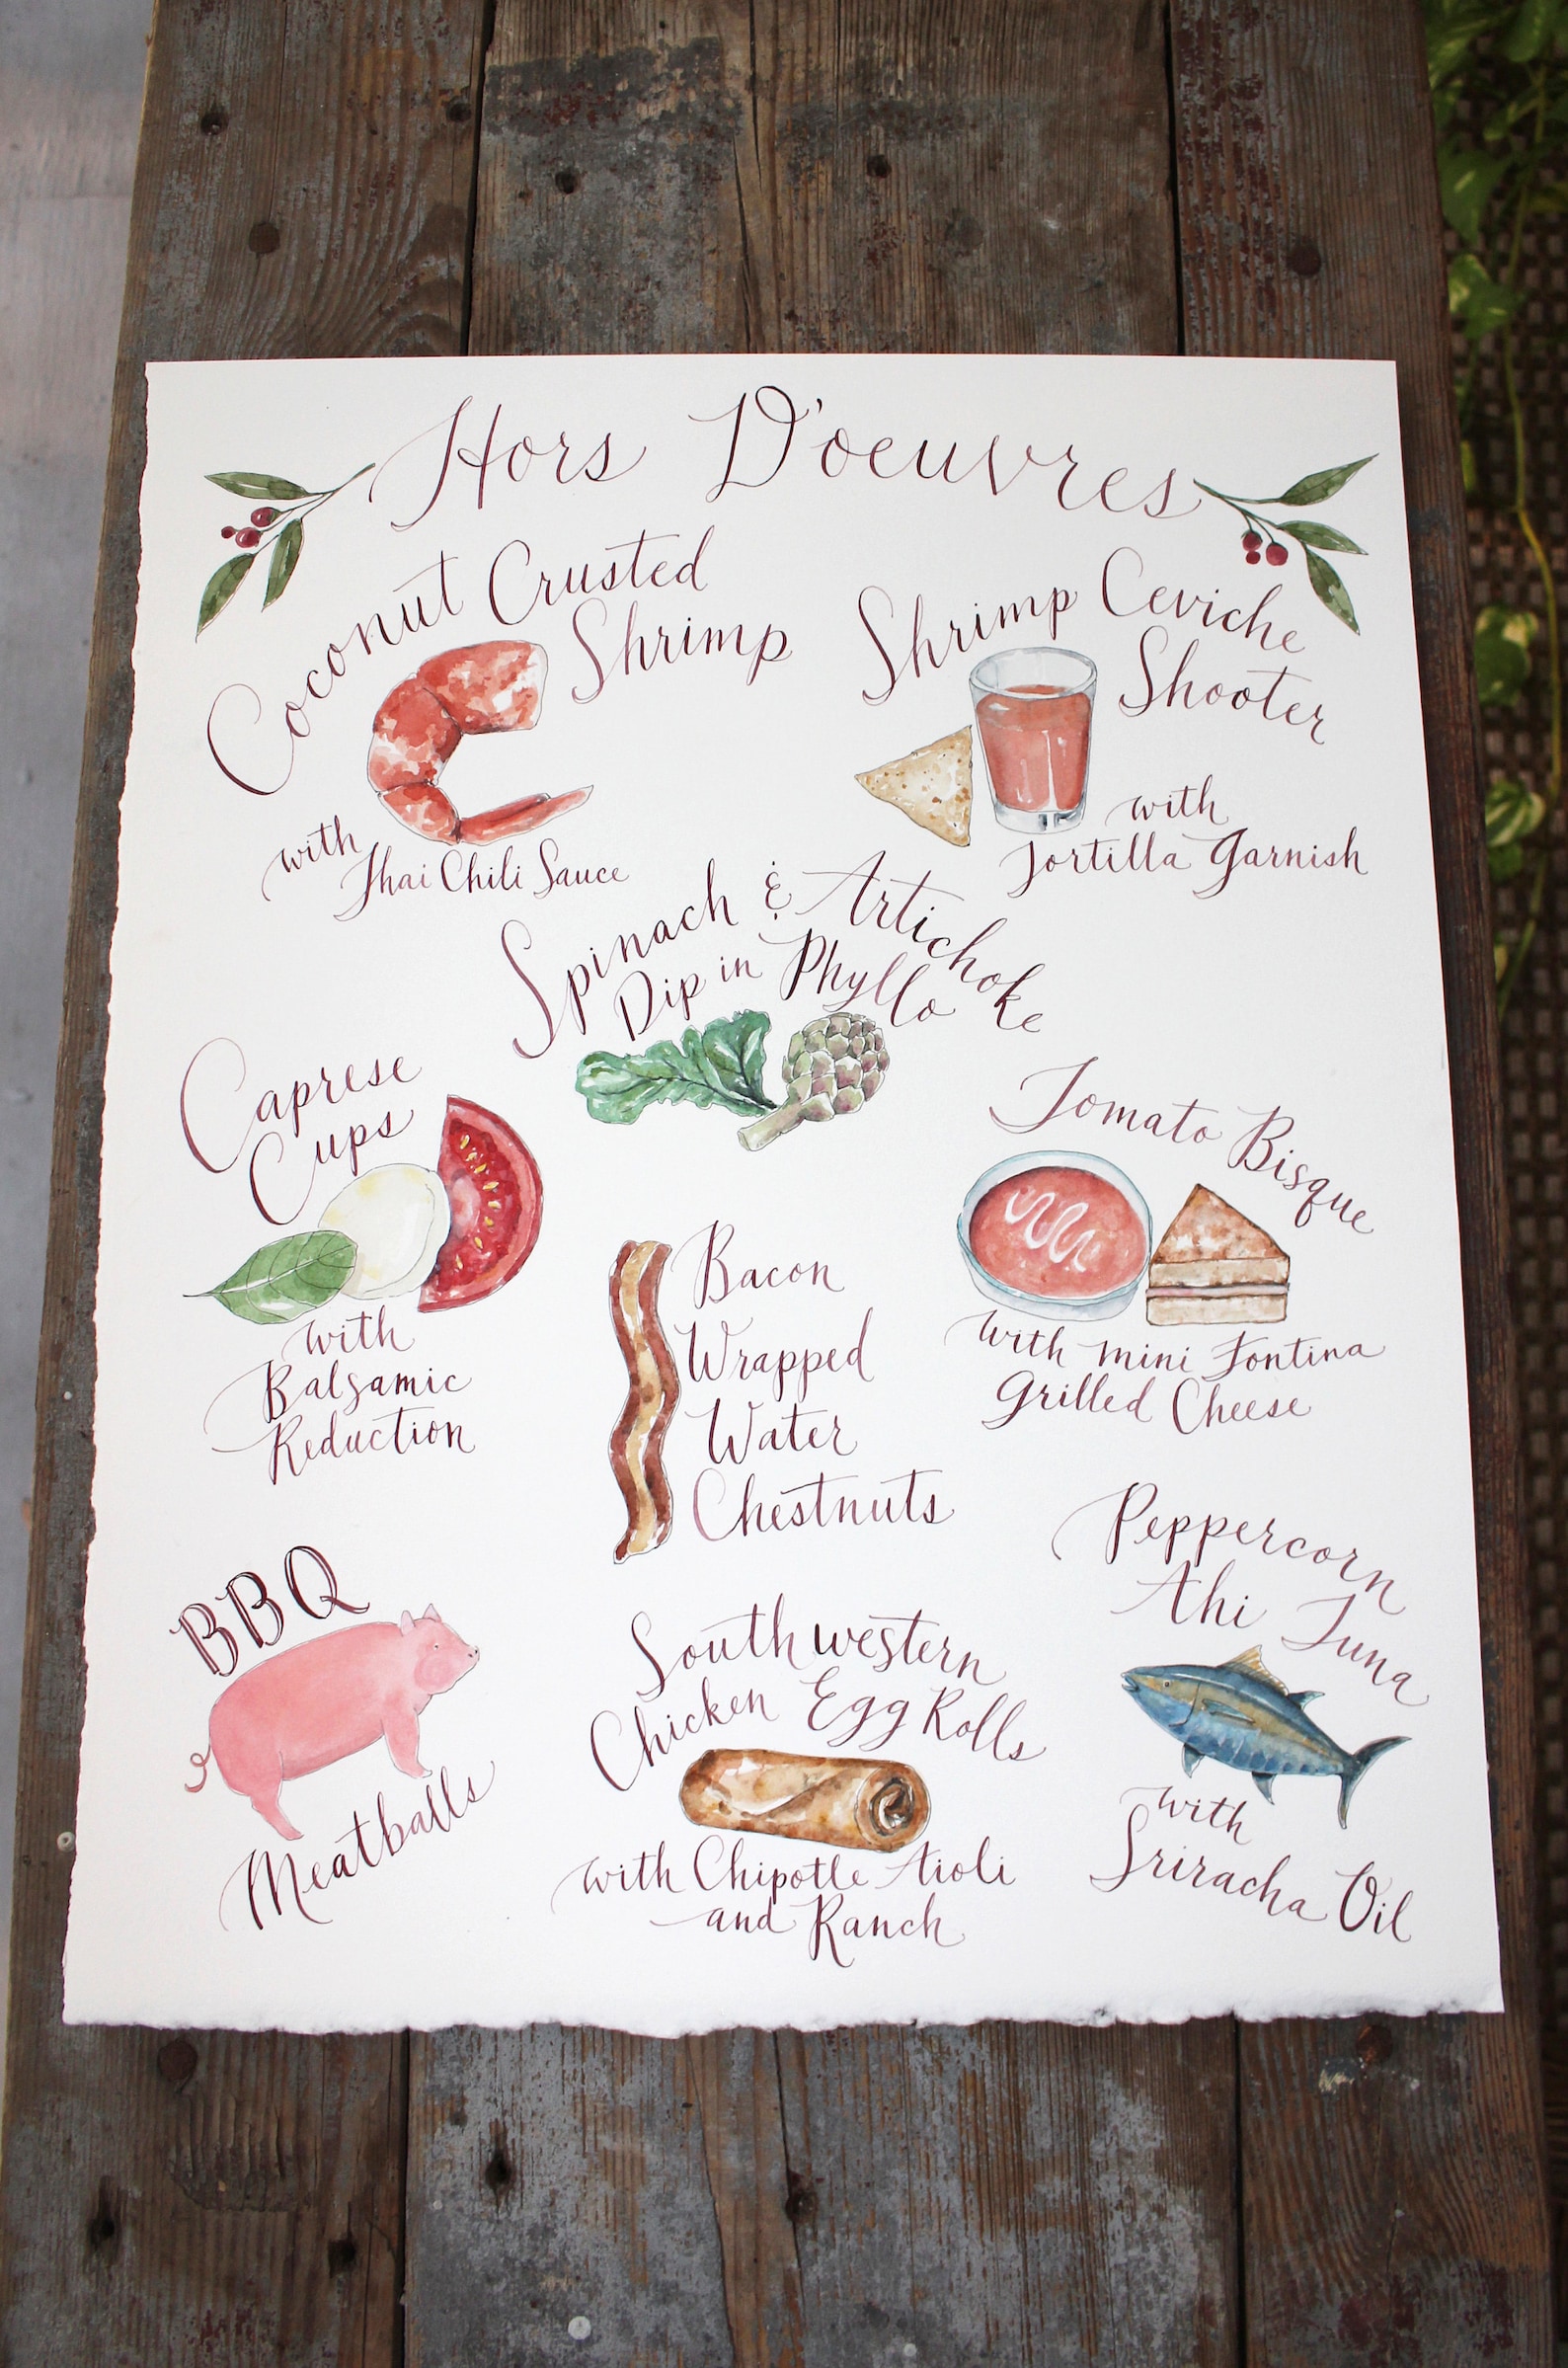 Hors D'oeuvres
Coconut Crusted
Shrimp
with
Thai Chili Sauce
Shrimp Ceviche
Shooter
with
Tortilla Garnish
Spinach & Artichoke
Dip in Phyllo
Caprese
Cups
with
Balsamic
Reduction
Bacon
Wrapped
Water
Chestnuts
Tomato Bisque
with mini Fontina
Grilled Cheese
BBQ
Meatballs
Southwestern
Chicken Egg Rolls
with Chipotle Aioli
and Ranch
Peppercorn
Ahi Tuna
with
Sriracha Oil